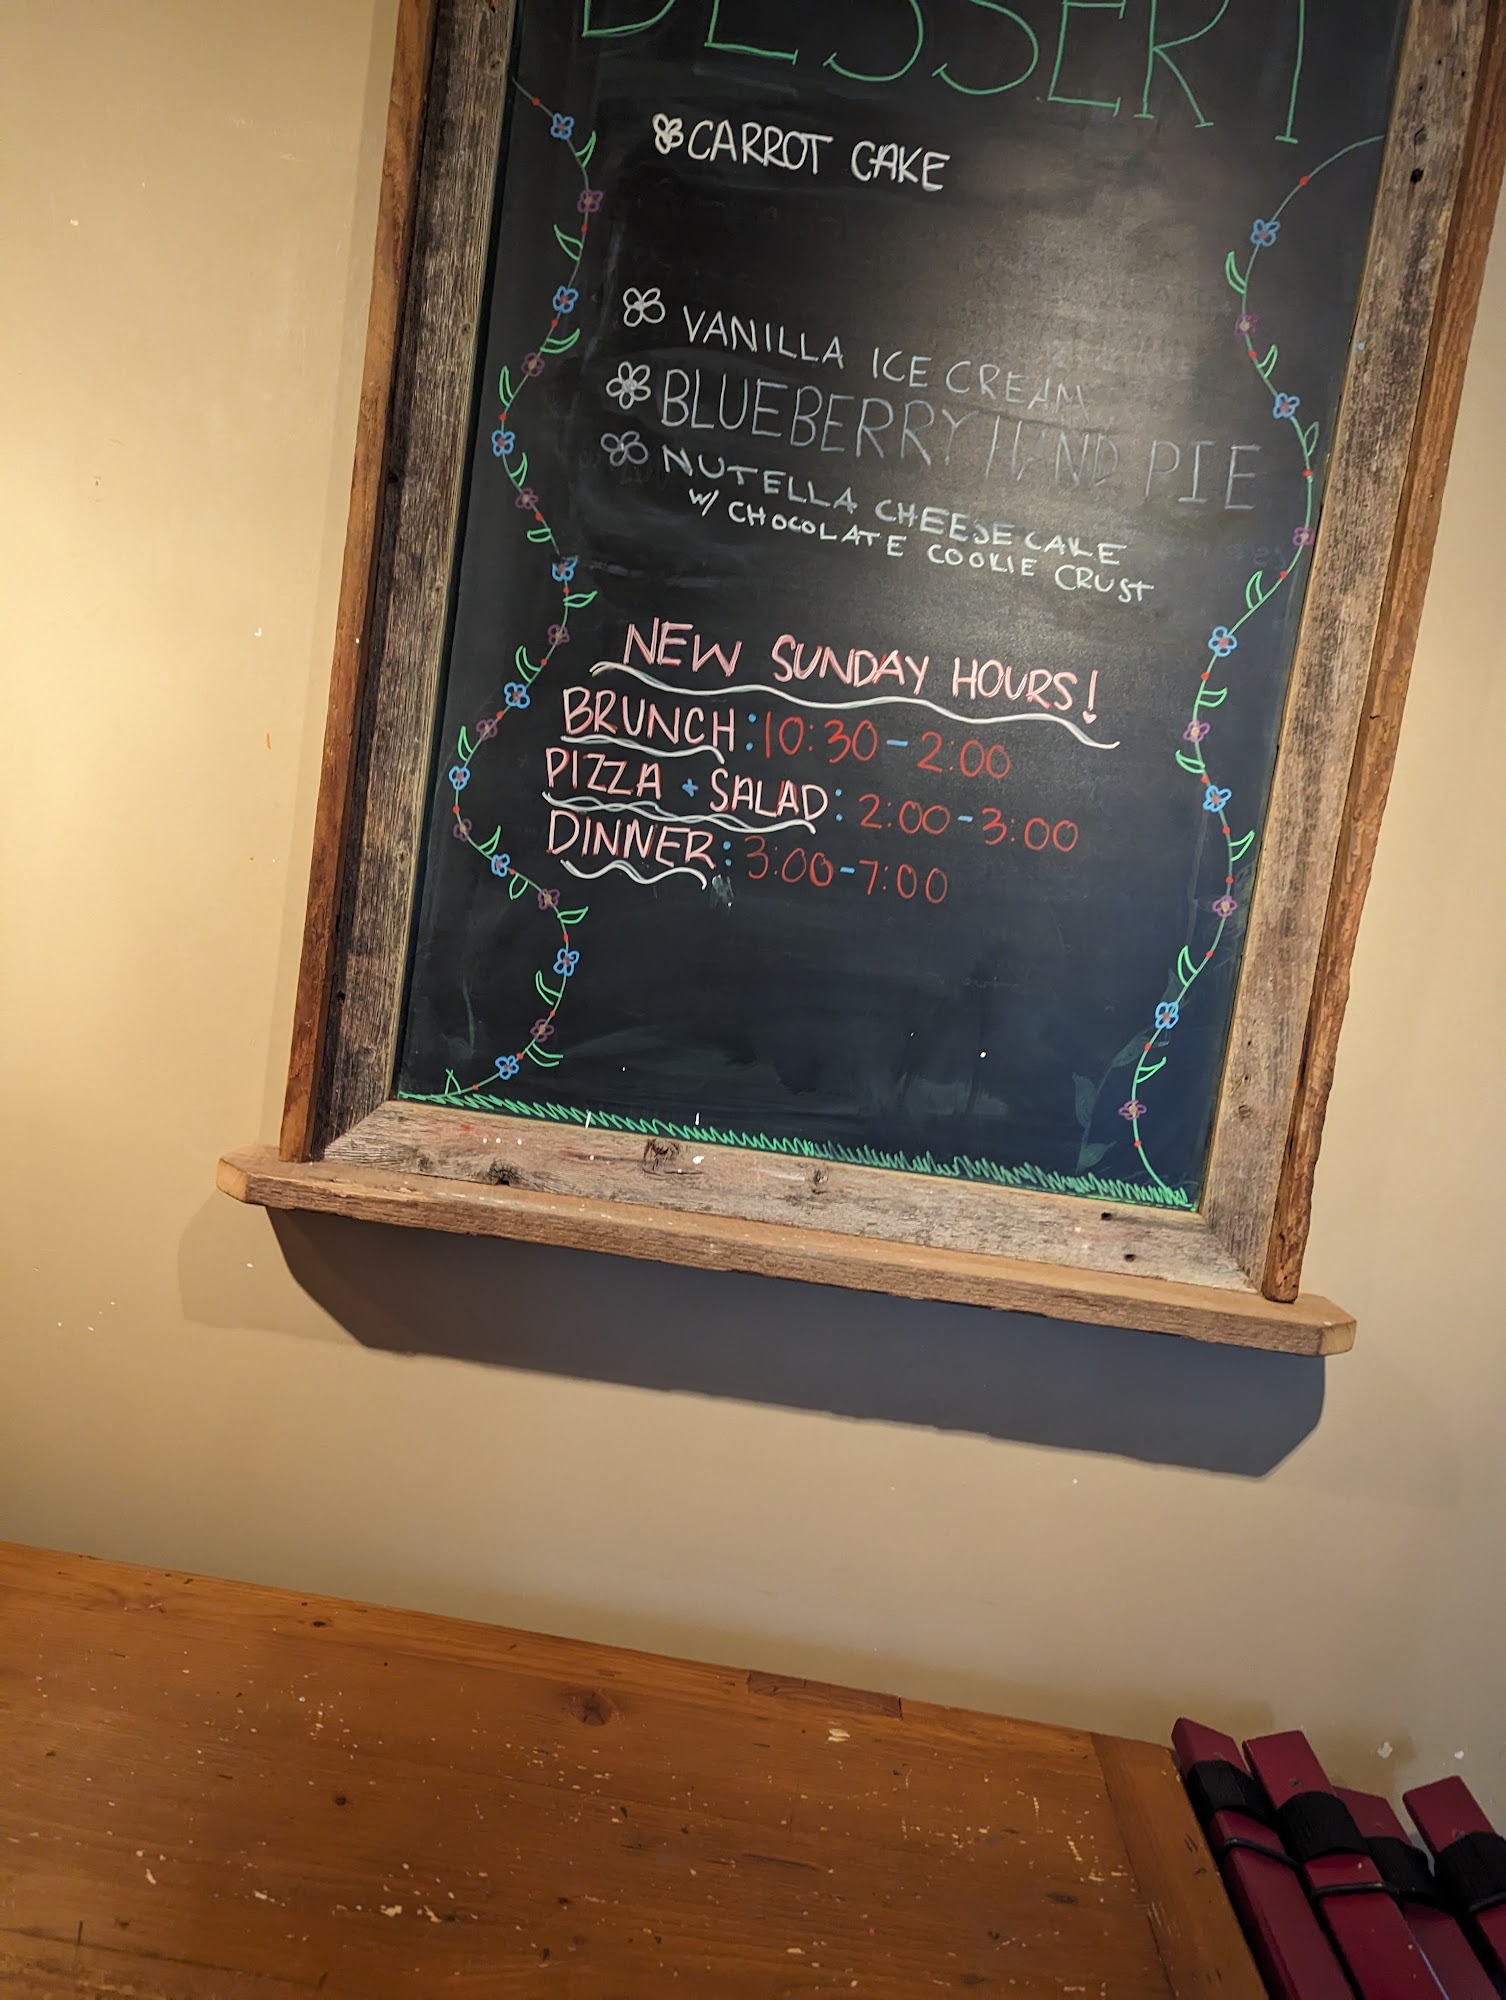 DESSERT
CARROT CAKE
VANILLA ICE CREAM
BLUEBERRY HAND PIE
NUTELLA CHEESECAKE
W/ CHOCOLATE COOKIE CRUST
NEW SUNDAY HOURS!
BRUNCH: 10:30-2:00
PIZZA + SALAD: 2:00-3:00
DINNER: 3:00-7:00